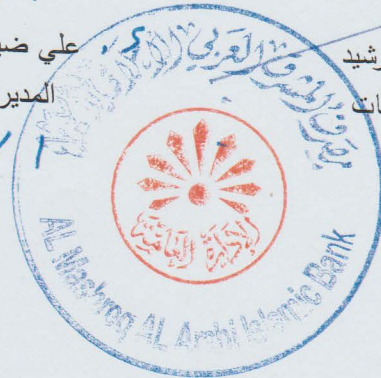 علي ضيـ
رشيد
المدير
ات
مصرف المشرق العربي الإسلامي
الإدارة العامة
AL Mashreq AL Arabi Islamic Bank